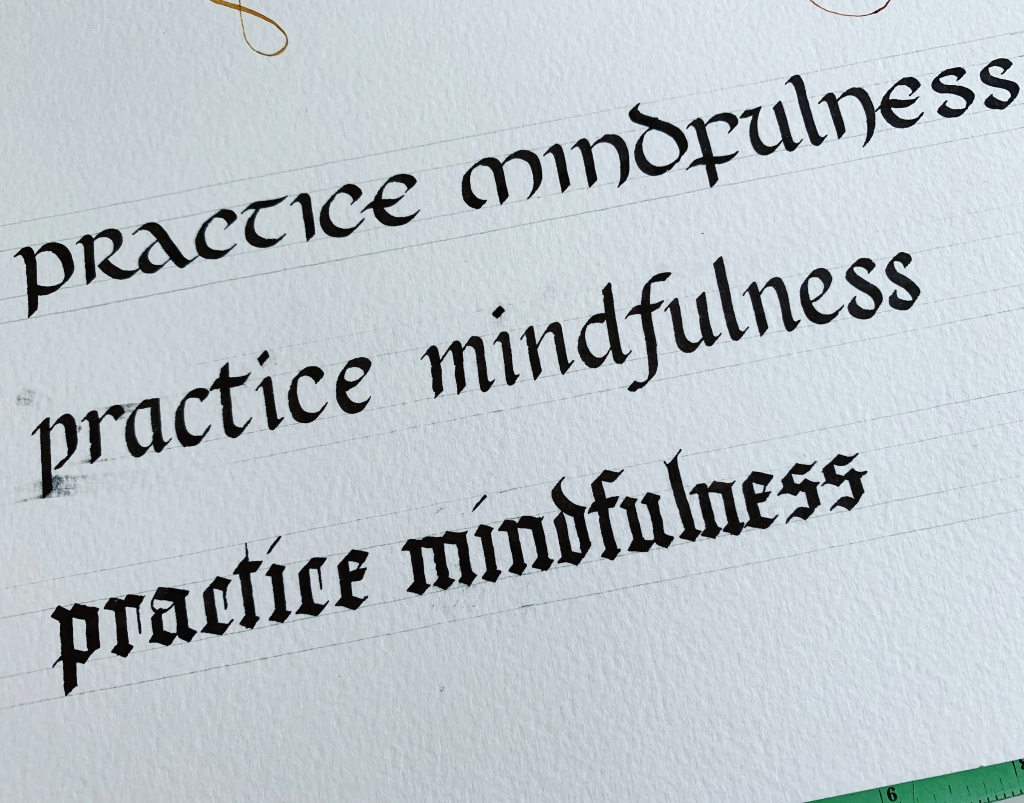 practice mindfulness
practice mindfulness
practice mindfulness
6